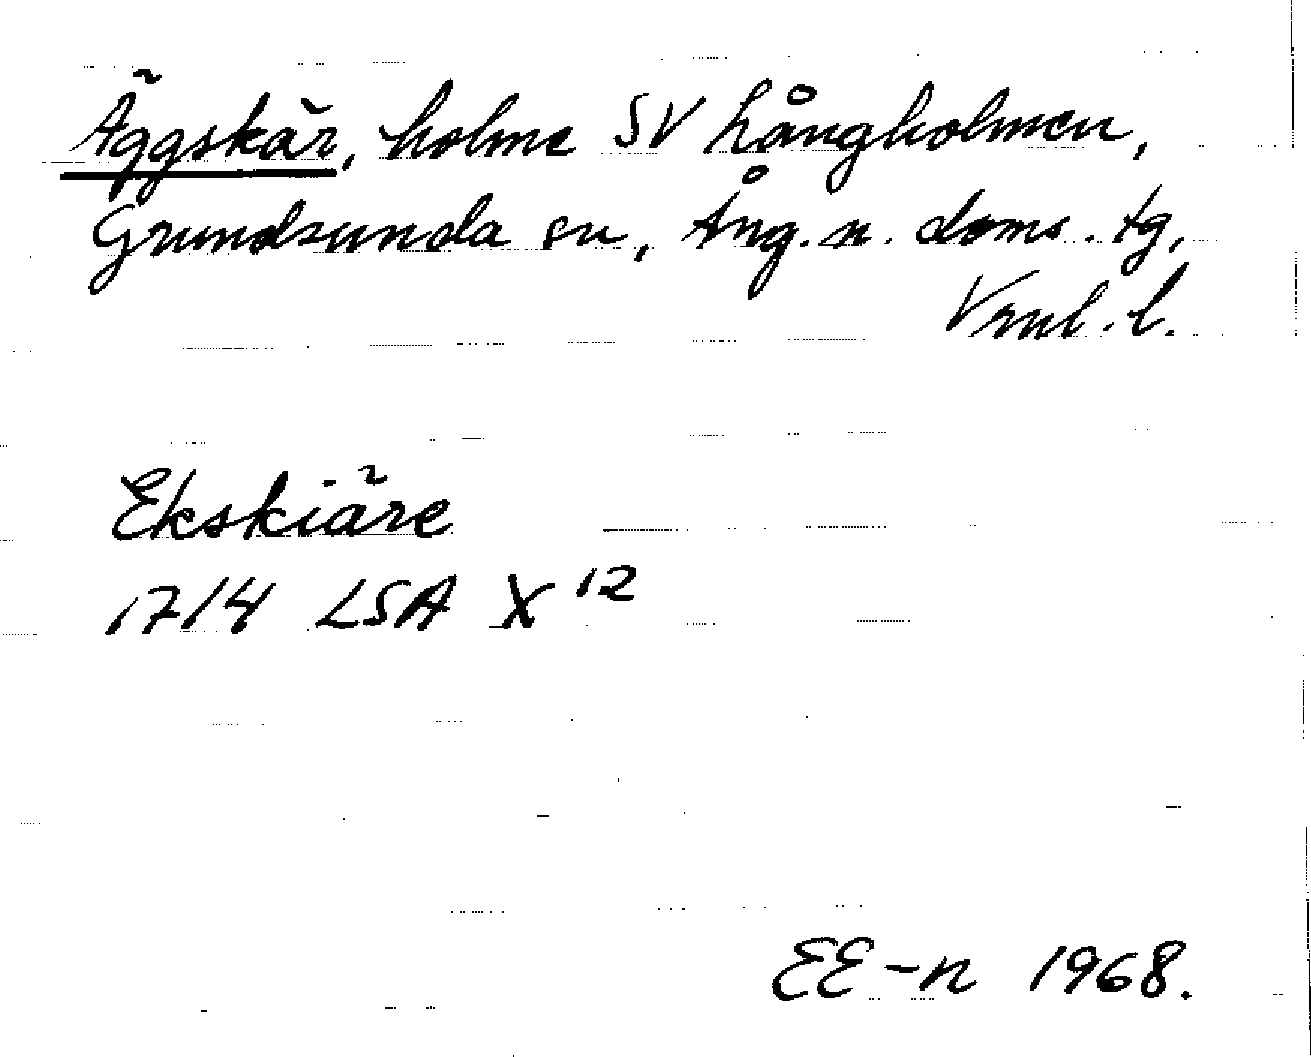 Äggskär, holme SV Långholmen,
Grundsunda sn, Ång. n. doms. tg,
Vrnl. l.
Ekskiäre
1714 LSA X 12
EE-n 1968.